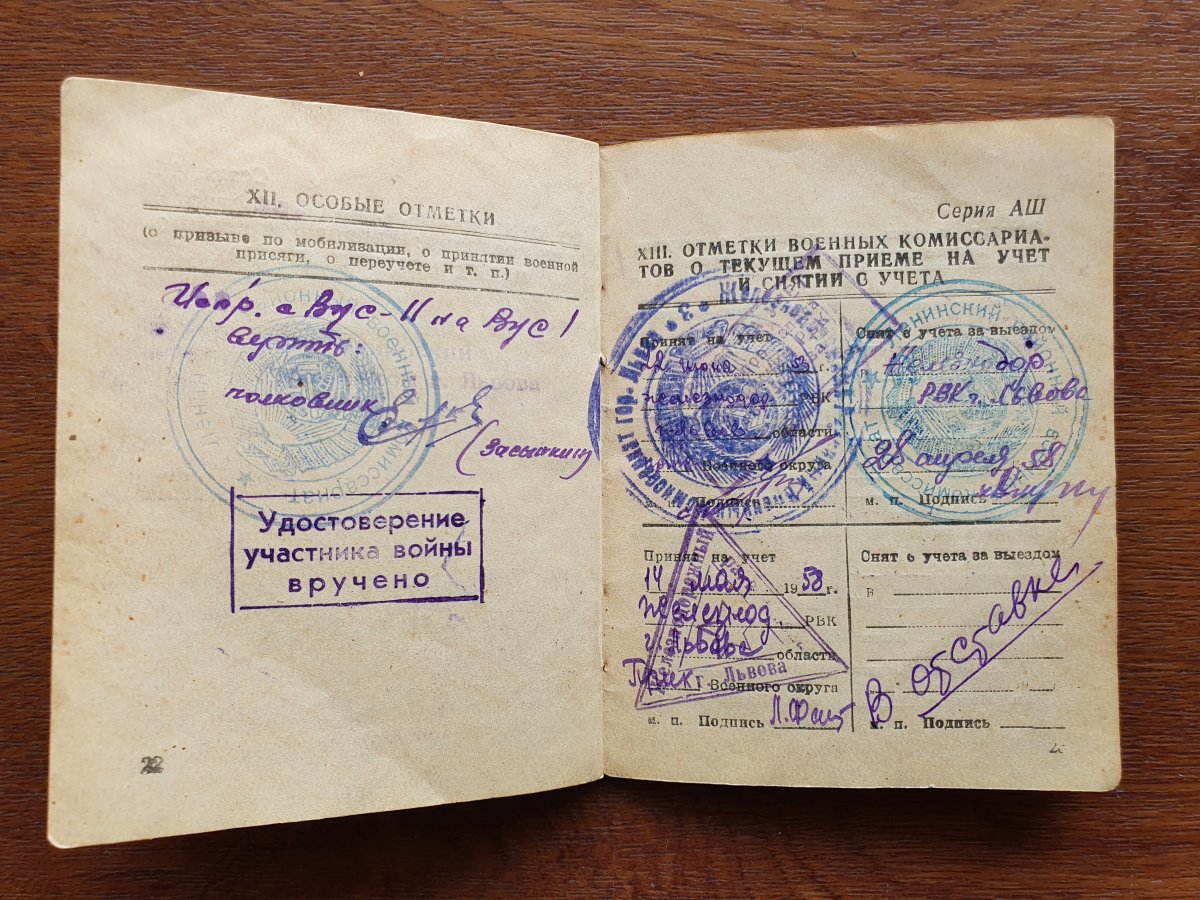 XII. ОСОБЫЕ ОТМЕТКИ
(о призыве по мобилизации, о принятии военной
присяги, о переучете и т. п.)
Испр. с Вус-II на Вус I
верить:
полковник
(Засыпкин)
Удостоверение
участника войны
вручено
22
Серия АШ
XIII. ОТМЕТКИ ВОЕННЫХ КОМИССАРИА-
ТОВ О ТЕКУЩЕМ ПРИЕМЕ НА УЧЕТ
И СНЯТИИ С УЧЕТА
Принят на учет
22 июня 53 г.
железнодор. РВК
г. Львова области
Военного округа
м. п. Подпись
Снят с учета за выездом
в Железнодор.
РВК г. Львова
28 апреля 58
м. п. Подпись
Принят на учет
14 мая 1958 г.
Железнод. РВК
г. Львова области
Прик Военного округа
м. п. Подпись
Железнодорожный
г. Львова
Снят с учета за выездом
в
В отставке
м. п. Подпись